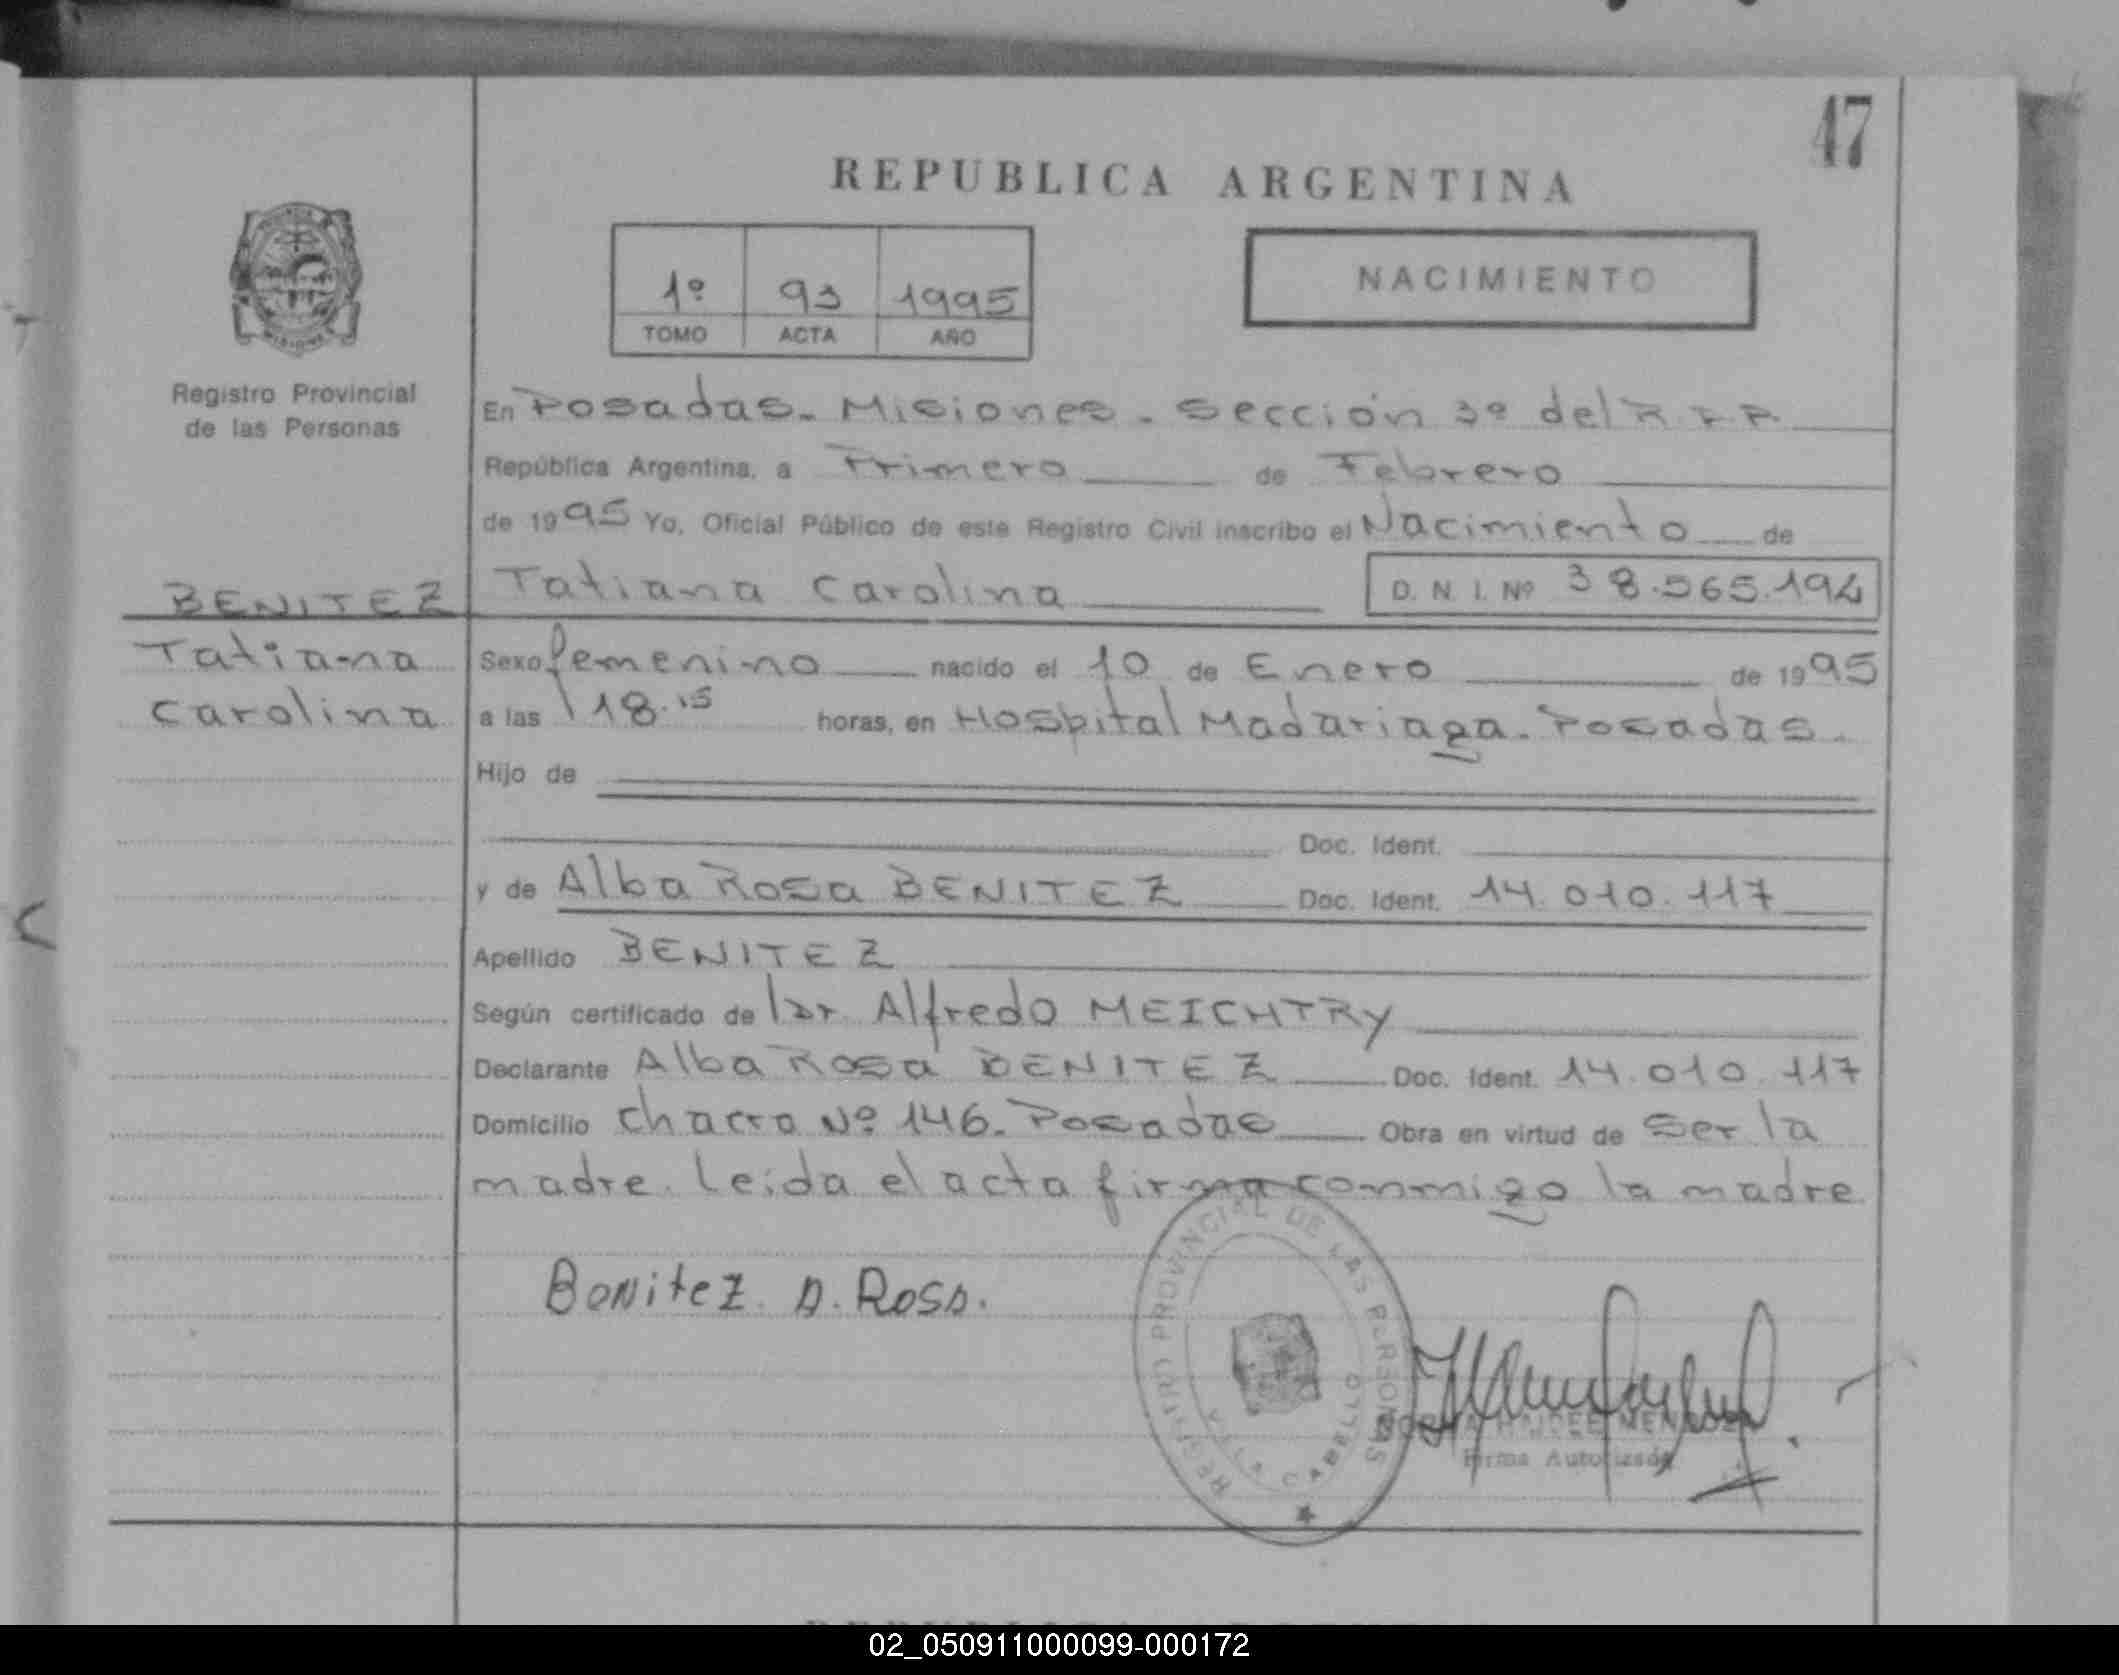 47
REPUBLICA ARGENTINA
1º 93 1995
TOMO ACTA AÑO
NACIMIENTO
Registro Provincial
de las Personas
En Posadas. Misiones. Sección 3º del R.P.P.
República Argentina, a Primero de Febrero
de 1995 Yo, Oficial Público de este Registro Civil inscribo el Nacimiento de
BENITEZ
Tatiana
Carolina
Tatiana Carolina D.N.I. Nº 38.565.194
Sexo femenino nacido el 10 de Enero de 1995
a las 18.15 horas, en Hospital Madariaga. Posadas.
Hijo de
Doc. Ident.
y de Alba Rosa BENITEZ Doc. Ident. 14.010.117
Apellido BENITEZ
Según certificado de Dr Alfredo MEICHTRY
Declarante Alba Rosa BENITEZ Doc. Ident. 14.010.117
Domicilio Chacra Nº 146. Posadas Obra en virtud de ser la
madre. Leída el acta firma conmigo la madre
Benitez. A. Rosa.
REGISTRO PROVINCIAL DE LAS PERSONAS
VILLA CABELLO
Firma Autorizada
02_050911000099-000172